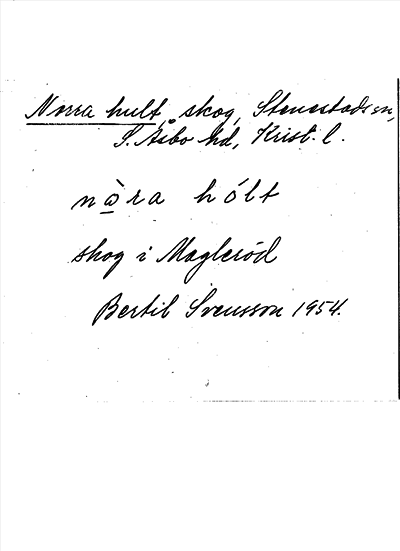 Norra hult, skog, Stenestads sn,
S. Åsbo hd, Krist. l.
nàra hólt
skog i Magleröd
Bertil Svensson 1954.